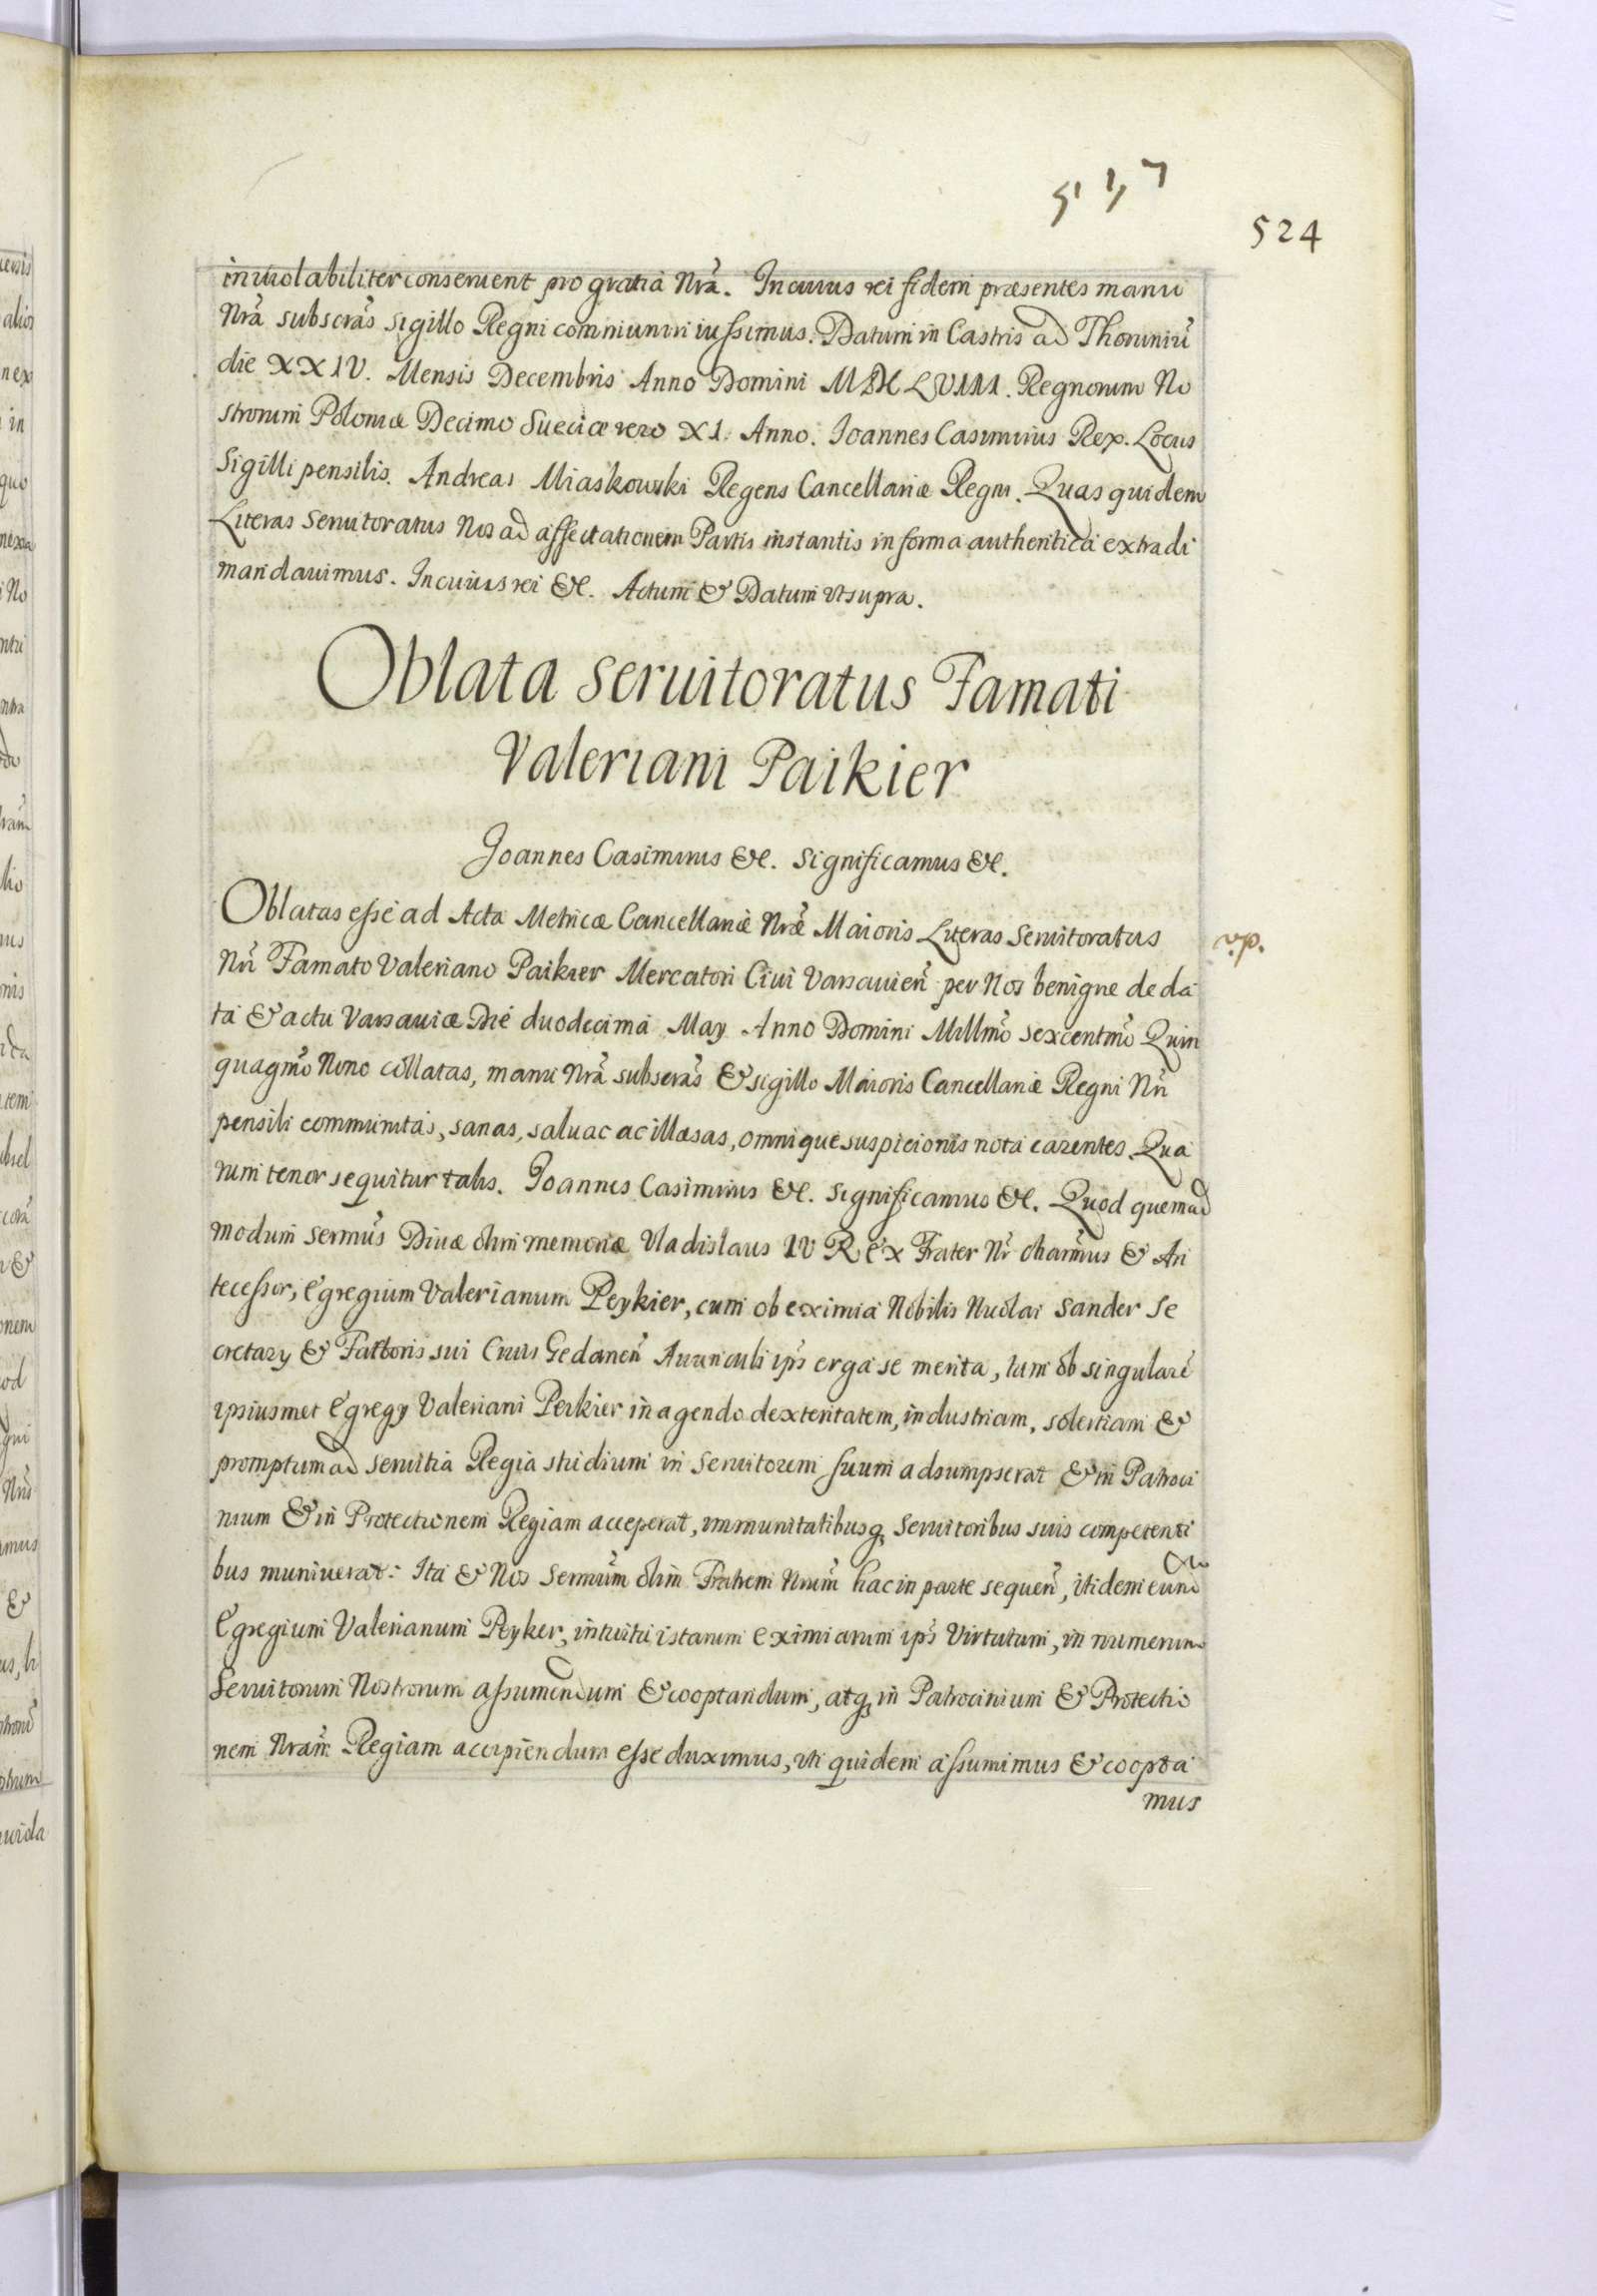 517
524
inuiolabiliter conseruent pro gratia Nrã. In cuius rei fidem præsentes manu
Nrã subscrãs sigillo Regni communiri iussimus. Datum in Castris ad Thoruniũ
die XXIV. Mensis Decembris Anno Domini MDCLVIII. Regnorum No
strorum Poloniæ Decimo Sueciæ vero XI. Anno. Joannes Casimirus Rex. Locus
Sigilli pensilis. Andreas Miaskowski Regens Cancellariæ Regni. Quas quidem
Literas Seruitoratus Nos ad affectationem Partis instantis in forma authentica extradi
mandauimus. In cuius rei &c. Actum & Datum vt supra.
Oblata Seruitoratus Famati
Valeriani Paikier
Joannes Casimirus &c. Significamus &c.
Oblatas esse ad Acta Metricæ Cancellariæ Nræ Maioris Literas Seruitoratus
v.p.
Nrĩ Famato Valeriano Paikier Mercatori Ciui Varsauieñ per Nos benigne de da
ta & actu Varsauiæ Die duodecima May Anno Domini Millmõ sexcentmõ Quin
quagmõ Nono collatas, manu Nrã subscrãs & sigillo Maioris Cancellariæ Regni Nrĩ
pensili communitas, sanas, saluac ac illæsas, omnique suspicionis nota carentes. Qua
rum tenor sequitur talis. Joannes Casimirus &c. Significamus &c. Quod quemad
modum sermũs Diuæ olim memoriæ Vladislaus IV Rex Frater Nr̃ charm̃us & An
tecessor, Egregium Valerianum Peykier, cum ob eximia Nobilis Nicolai Sander Se
cretary & Factoris sui Ciuis Gedaneñ Auunculi ips̃ erga se merita, tum ob singularẽ
ipsiusmet Egregy Valeriani Peikier in agendo dexteritatem, industriam, solertiam &
promptum ad seruitia Regia studium in Seruitorem suum adsumpserat & in Patroci
nium & in Protectionem Regiam acceperat, immunitatibusq Seruitoribus suis competenti
bus muniuerat: Ita & Nos Sermũm olim Fratrem Nrũm hac in parte sequeñ, itidem eum
Egregium Valerianum Peyker, intuitu istarum eximiarum ips̃ Virtutum, in numerum
Seruitorum Nostrorum assumendum & cooptandum, atq in Patrocinium & Protectio
nem Nrãm Regiam accipiendum esse duximus, vti quidem assumimus & coopta
mus